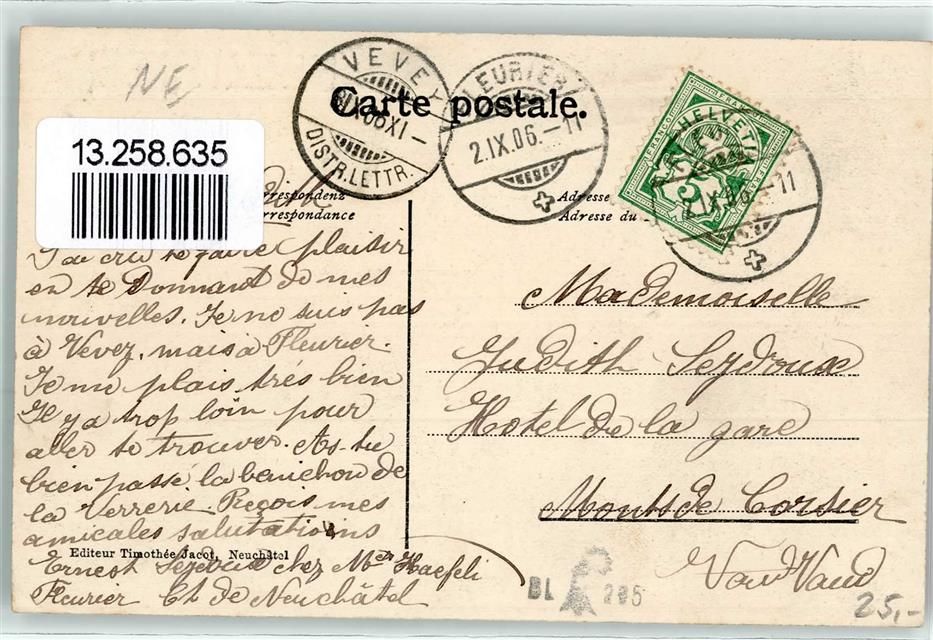 NE
Carte postale.
VEVEY
DISTR. LETTR.
FLEURIER
2.IX.06.-11
HELVETIA
FRANCO
5
2.IX.06.-11
13.258.635
rrespondenz
rrespondance
Adresse
Adresse du
J'ai cru te faire plaisir
en te Donnant de mes
nouvelles. Je ne suis pas
à Vevey, mais à Fleurier.
Je me plais très bien
Il y a trop loin pour
aller te trouver. As-tu
bien passé la benichon de
la Verrerie Reçois mes
amicales salutations
Editeur Timothée Jacot, Neuchâtel
Ernest Seydoux chez Mr Haefeli
Fleurier Ct de Neuchâtel
Mademoiselle
Judith Seydoux
Hotel de la gare
Monts de Corsier
Vaud Vaud
BL 285
25,-